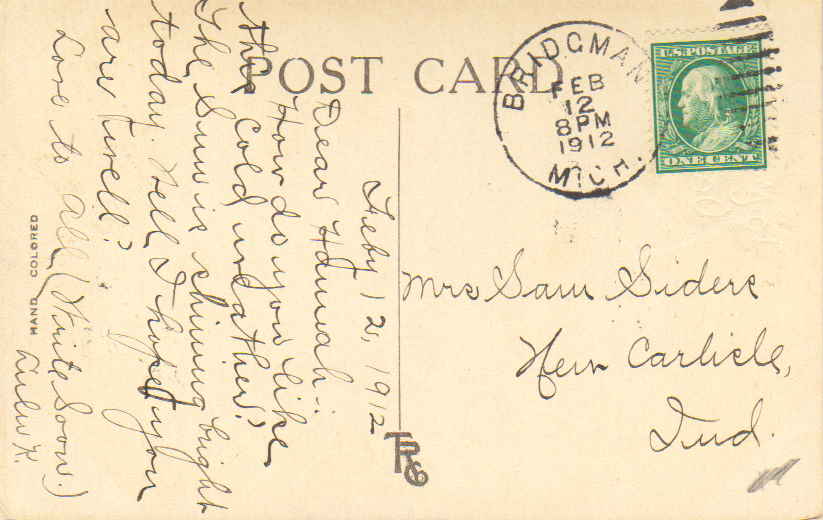 POST CARD
BRIDGMAN
FEB
12
8 PM
1912
MICH.
U.S. POSTAGE
ONE CENT
Feby 12, 1912
Dear Hannah:
How do you like
this cold weather?
The Sun is shinning bright
today. Well I hope you
are well?
Love to all (Write Soon.)
HAND COLORED
Mrs Sam Siders
New Carlisle,
Ind.